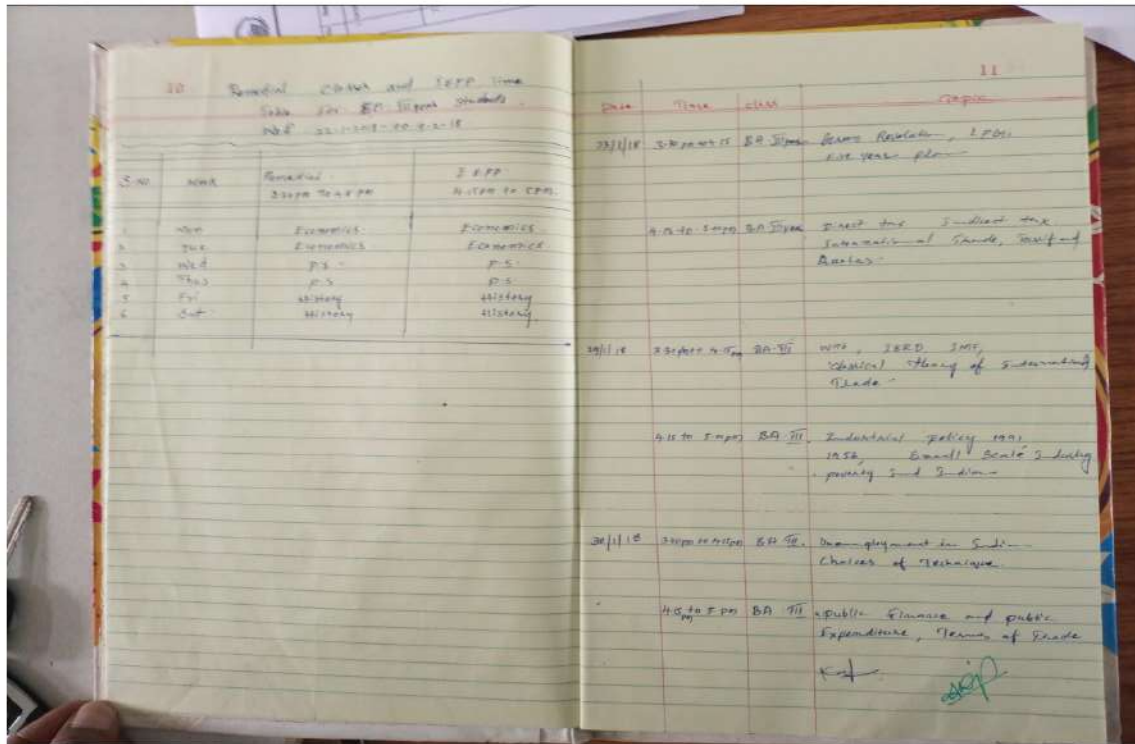 10
Remedial classes and IEPP Time
Table for BA III year students.
Wef 22-1-2018 to 4-2-18
S.No Week Remedial I E PP
3.30pm To 4.15 pm 4.15pm to 5pm.
1 Mon Economics Economics
2 Tue Economics Economics
3 Wed P.S. P.S.
4 Thus P.S P.S
5 Fri History History
6 Sat History History
11
Date Time class Topic
3-30 pm to 4-15 BA III year
five year plan
4.15 to 5-pm BA III year Direct tax Indirect tax
International Trade, Tariff and
Quotas.
29/1/18 3-30 pm to 4.15pm BA-III WTO, IBRD, IMF,
Classical theory of International
Trade
4.15 to 5-pm BA III. Industrial policy 1991
1956, Small Scale Industry
poverty
30/1/18 3-30pm to 4.15pm BA III. Unemployment in India
Choices of Technique.
4.15 pm to 5 pm BA III public finance and public
Expenditure, Terms of Trade